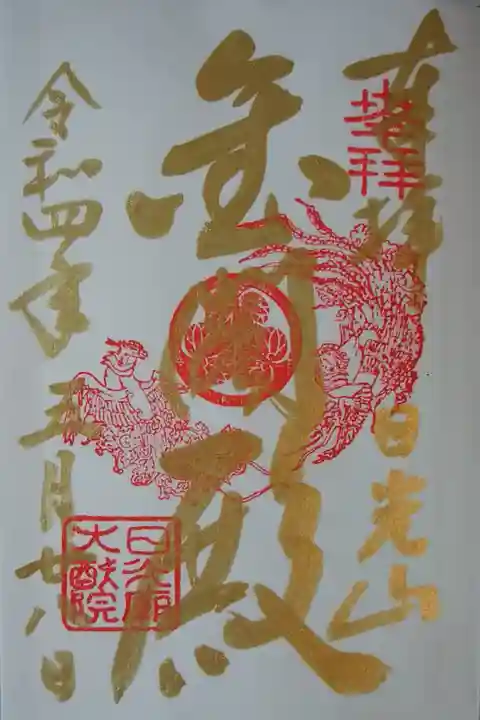 奉拝
拝
日光山
金閣殿
令和四年
五月廿八日
日光廟
大猷院